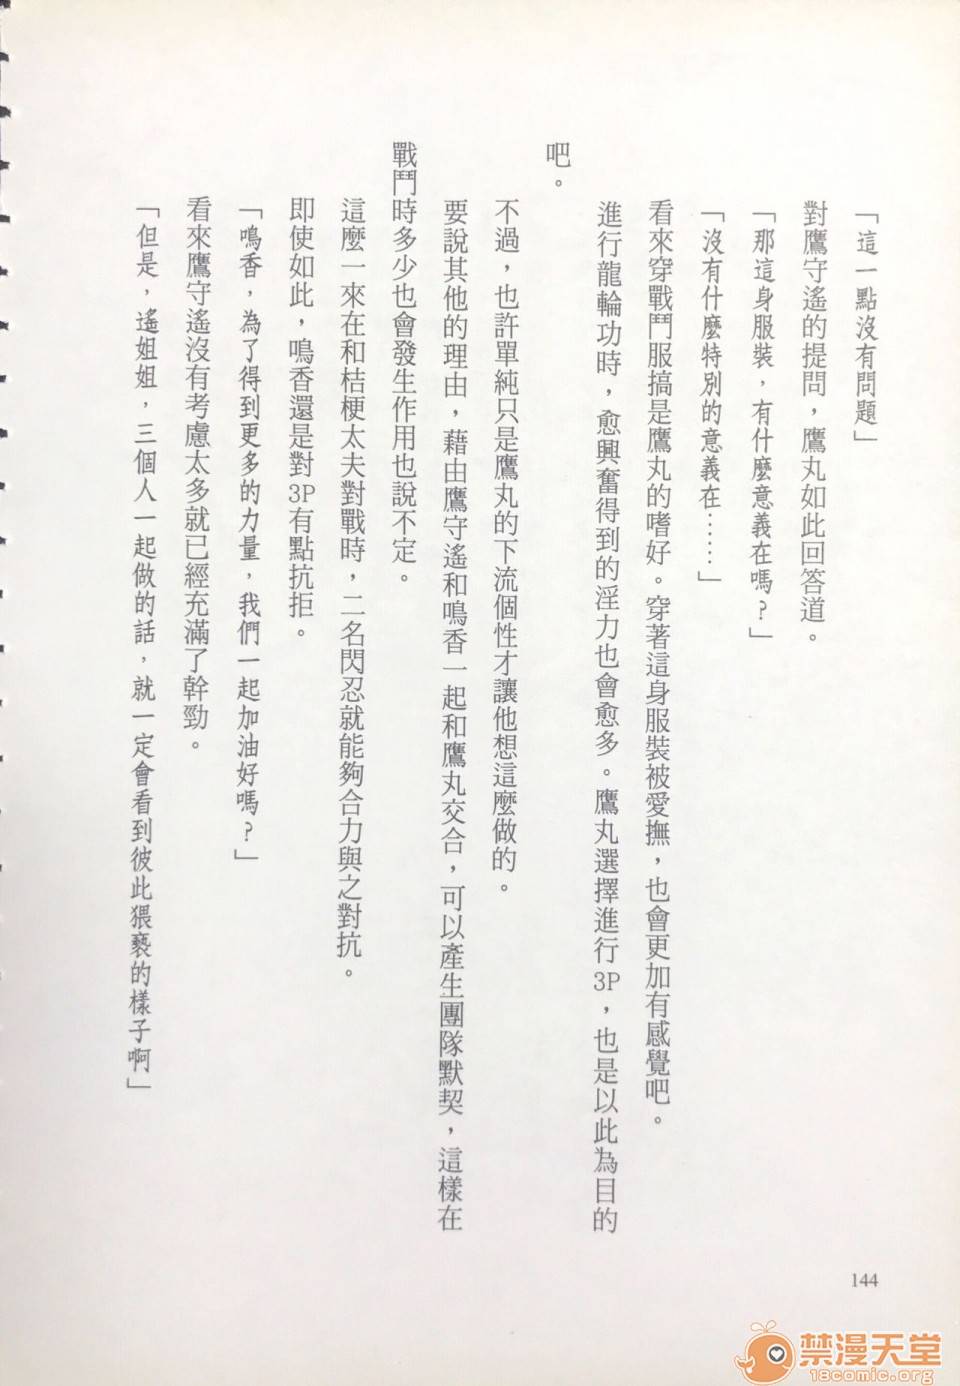 「這一點沒有問題」
對鷹守遙的提問，鷹丸如此回答道。
「那這身服裝，有什麼意義在嗎？」
「沒有什麼特別的意義在……」
看來穿戰鬥服搞是鷹丸的嗜好。穿著這身服裝被愛撫，也會更加有感覺吧。
進行龍輪功時，愈興奮得到的淫力也會愈多。鷹丸選擇進行3P，也是以此為目的
吧。
不過，也許單純只是鷹丸的下流個性才讓他想這麼做的。
要說其他的理由，藉由鷹守遙和鳴香一起和鷹丸交合，可以產生團隊默契，這樣在
戰鬥時多少也會發生作用也說不定。
這麼一來在和桔梗太夫對戰時，二名閃忍就能夠合力與之對抗。
即使如此，鳴香還是對3P有點抗拒。
「鳴香，為了得到更多的力量，我們一起加油好嗎？」
看來鷹守遙沒有考慮太多就已經充滿了幹勁。
「但是，遙姐姐，三個人一起做的話，就一定會看到彼此猥褻的樣子啊」
144
禁漫天堂
18comic.org